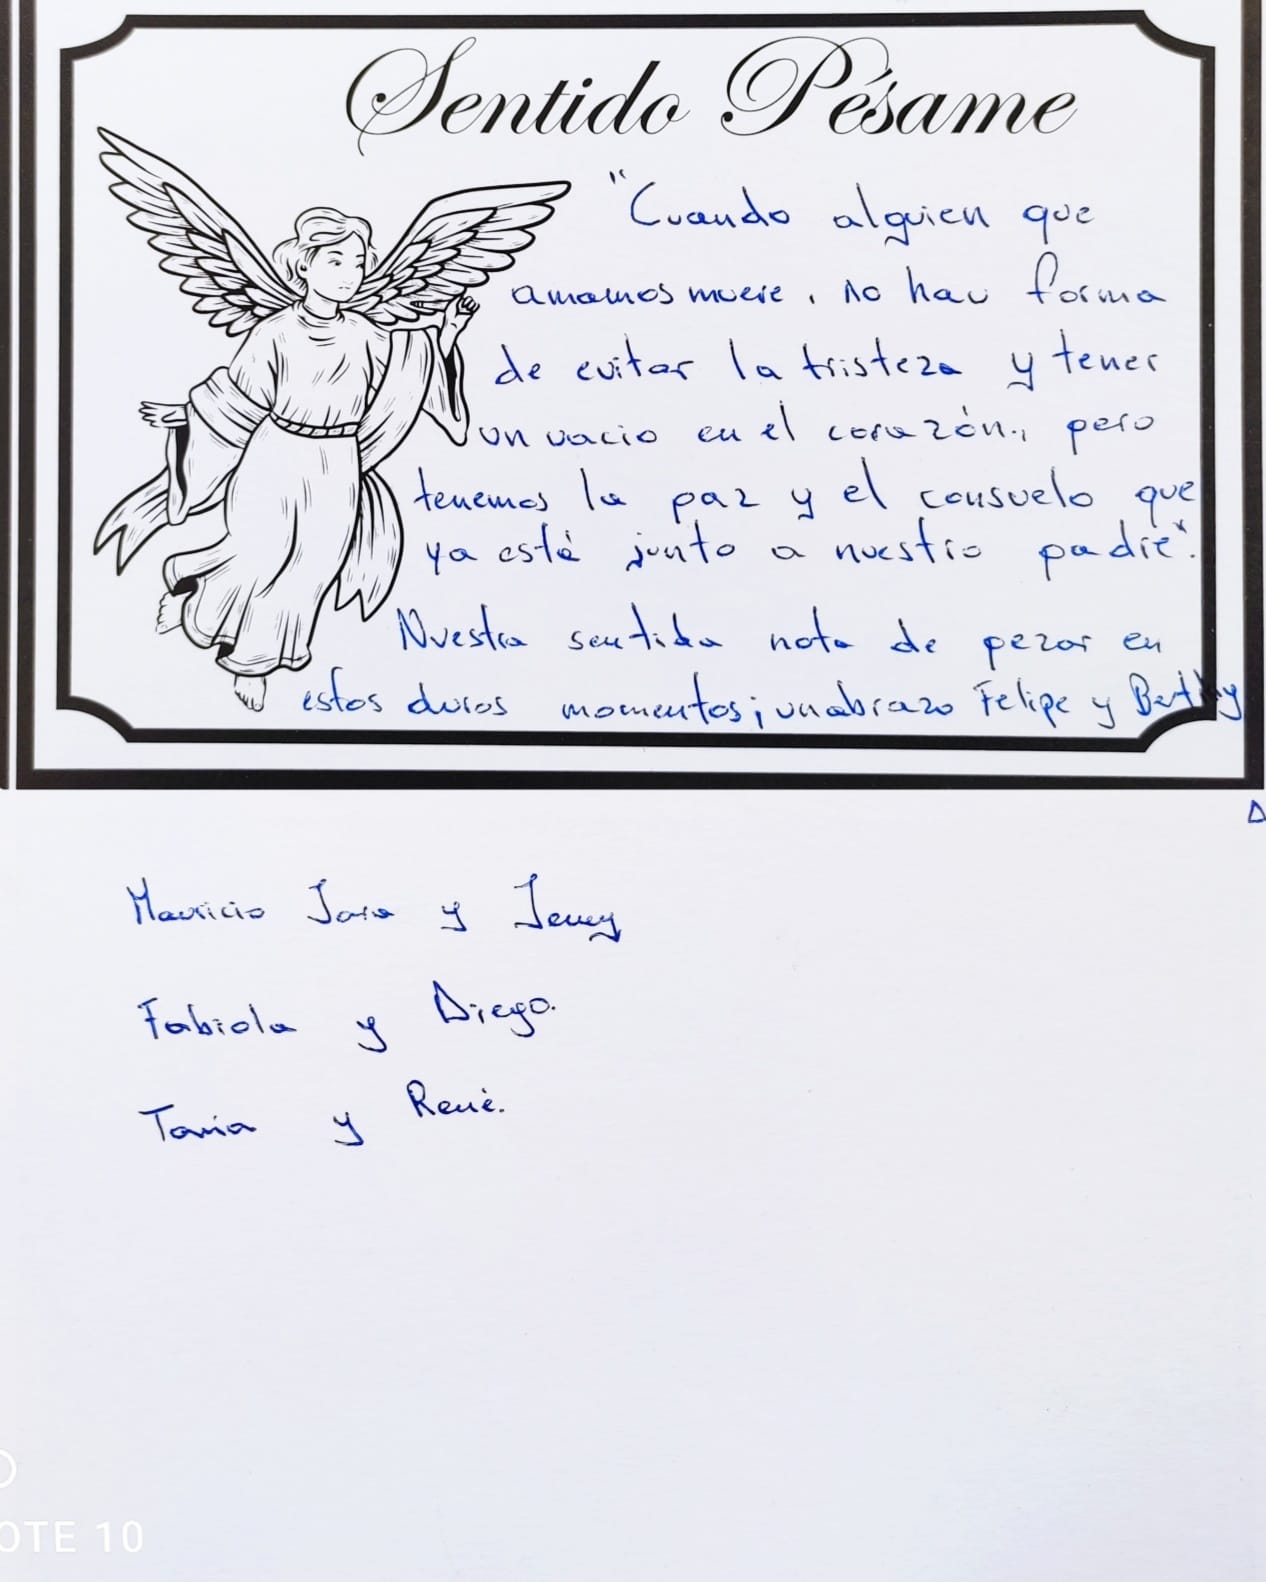 Sentido Pésame
"Cuando alguien que
amamos muere, no hay forma
de evitar la tristeza y tener
un vacio en el corazón., pero
tenemos la paz y el consuelo que
ya está junto a nuestro padre".
Nuestra sentida nota de pezar en
estos duros momentos; un abrazo Felipe y Betthy
Mauricio Jara y Jenny
Fabiola y Diego.
Tania y René.
OTE 10